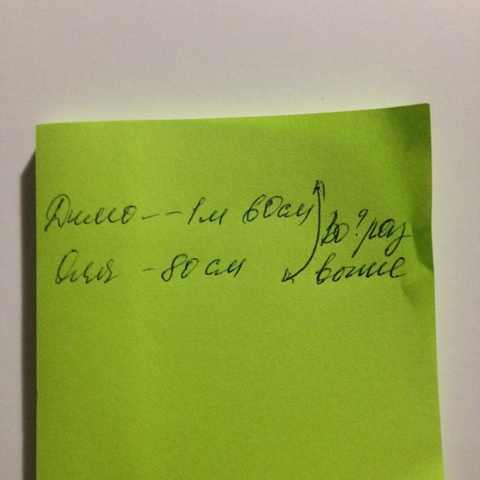 Дима - - 1 м 60 см
Оля - 80 см
во ? раз
выше